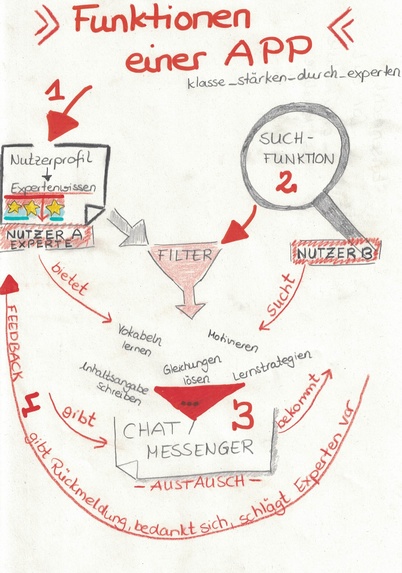 >> Funktionen <<
einer APP
klasse_stärken_durch_experten
1
Nutzerprofil
Expertenwissen
NUTZER A
EXPERTE
SUCH-
FUNKTION
2
NUTZER B
FILTER
bietet
sucht
Vokabeln
lernen
Motivieren
Inhaltsangabe
schreiben
Gleichungen
lösen
Lernstrategien
gibt
bekommt
3
CHAT
MESSENGER
- AUSTAUSCH -
FEEDBACK
4
gibt Rückmeldung, bedankt sich, schlägt Experten vor